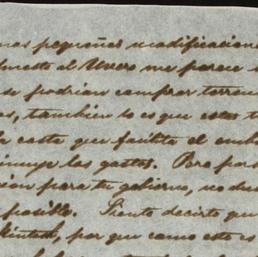 nas pequeñas modificacione
al Uvero me parece
se podrian comprar terren
as, tambien lo es que estas t
la costa que facilita el emb
minuye los gastos. Pero para
sion para tu gobierno, no du
posible. Siento decirte que
McIntosh, por que como esto es